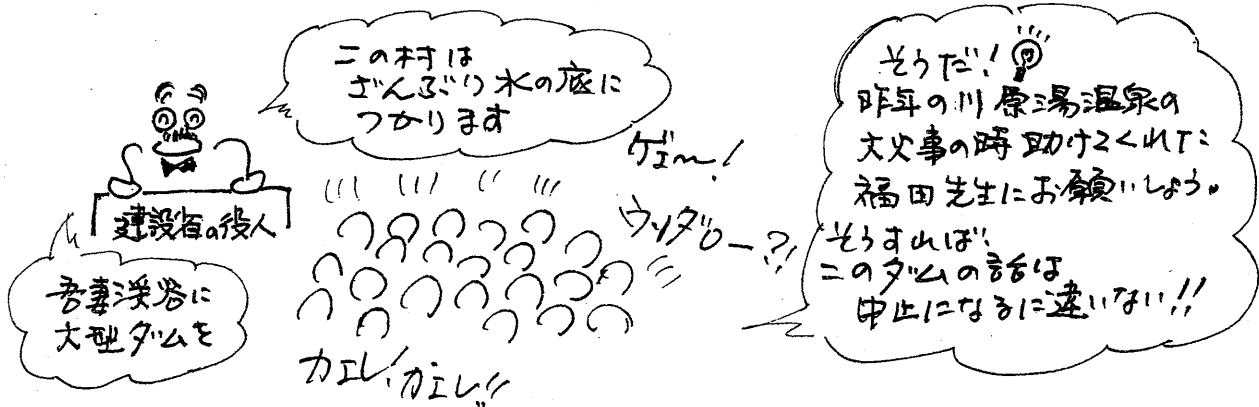 この村は
ざんぶり水の底に
つかります
建設省の役人
吾妻渓谷に
大型ダムを
ゲェ〜!
ウソダロー?!
カエレ!カエレ!!
そうだ!
昨年の川原湯温泉の
大火事の時助けてくれた
福田先生にお願いしよう。
そうすれば、
このダムの話は
中止になるに違いない!!